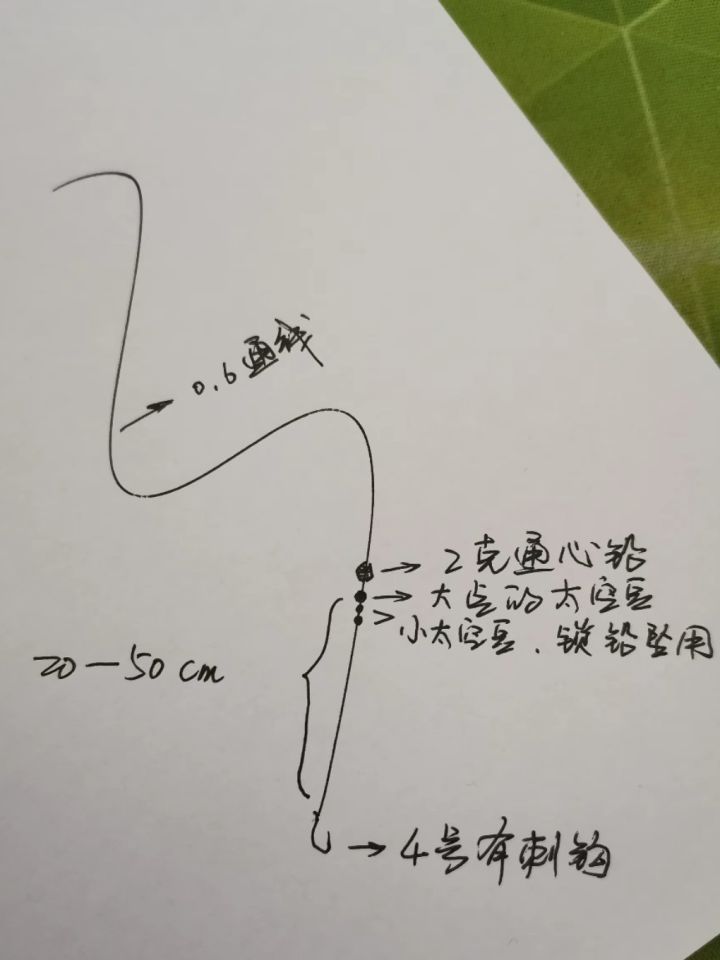 0.6通线
2克通心铅
大点的太空豆
小太空豆.锁铅坠用
20-50cm
4号有刺钩